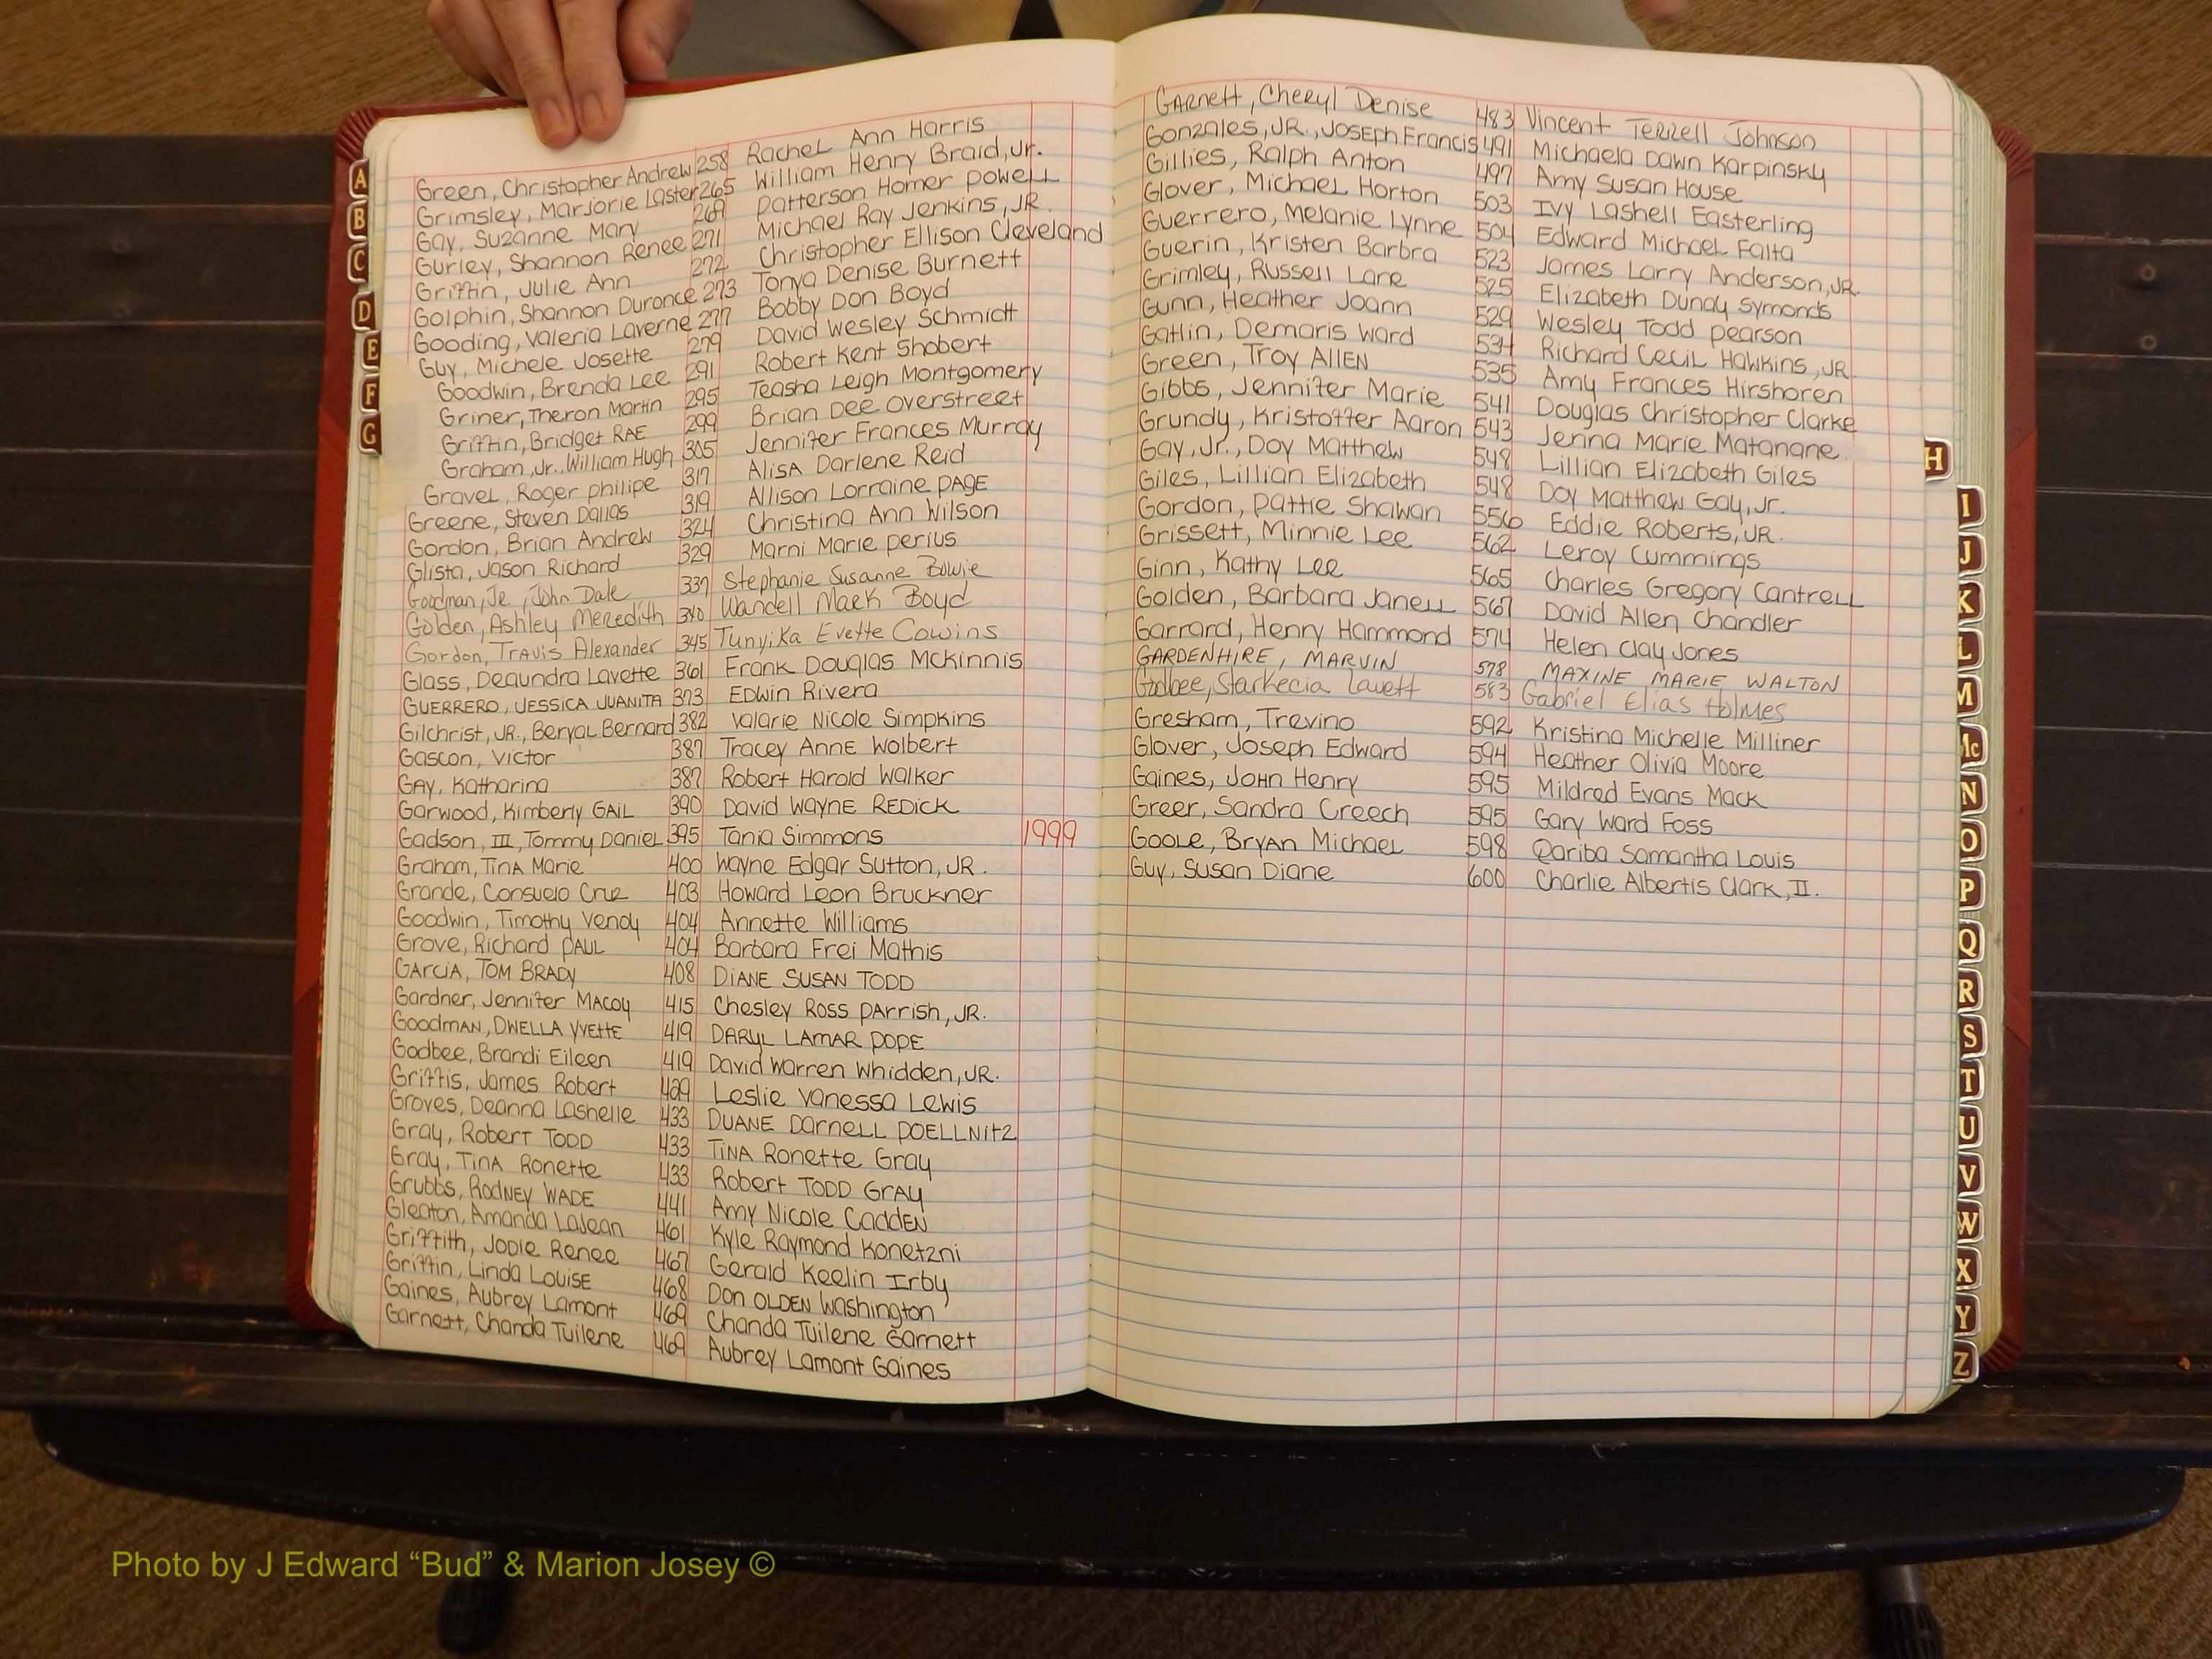 Green, Christopher Andrew 258 Rachel Ann Harris
Grimsley, Marjorie Laster 265 William Henry Braid, Jr.
Gay, Suzanne Mary 269 Patterson Homer Powell
Gurley, Shannon Renee 271 Michael Ray Jenkins, JR.
Griffin, Julie Ann 272 Christopher Ellison Cleveland
Golphin, Shannon Durance 273 Tonya Denise Burnett
Gooding, Valeria Laverne 277 Bobby Don Boyd
Guy, Michele Josette 279 David Wesley Schmidt
Goodwin, Brenda Lee 291 Robert Kent Shobert
Griner, Theron Martin 295 Teasha Leigh Montgomery
Griffin, Bridget RAE 299 Brian Dee Overstreet
Graham, Jr., William Hugh 305 Jennifer Frances Murray
Gravel, Roger Philipe 317 Alisa Darlene Reid
Greene, Steven Dallas 319 Allison Lorraine PAGE
Gordon, Brian Andrew 324 Christina Ann Wilson
Glista, Jason Richard 329 Marni Marie Perius
Goodman, Jr., John Dale 337 Stephanie Susanne Bowie
Golden, Ashley Meredith 340 Wandell Mark Boyd
Gordon, Travis Alexander 345 Tunyika Evette Cowins
Glass, Deaundra Lavette 361 Frank Douglas McKinnis
GUERRERO, JESSICA JUANITA 373 Edwin Rivera
Gilchrist, JR., Beryal Bernard 382 Valarie Nicole Simpkins
Gascon, Victor 387 Tracey Anne Wolbert
Gay, Katharina 387 Robert Harold Walker
Garwood, Kimberly GAIL 390 David WAYNE REDICK
Gadson, III, Tommy Daniel 395 Tania Simmons 1999
Graham, Tina Marie 400 Wayne Edgar Sutton, JR.
Grande, Consuelo Cruz 403 Howard Leon Bruckner
Goodwin, Timothy Vendy 404 Annette Williams
Grove, Richard PAUL 404 Barbara Frei Mathis
GARCIA, TOM BRADY 408 DIANE SUSAN TODD
Gardner, Jennifer Macoy 415 Chesley Ross Parrish, JR.
Goodman, DWELLA YVETTE 419 DARYL LAMAR POPE
Godbee, Brandi Eileen 419 David Warren Whidden, JR.
Griffis, James Robert 429 Leslie Vanessa Lewis
Groves, Deanna Lashelle 433 DUANE Darnell POELLNITZ
Gray, Robert TODD 433 TINA Ronette Gray
Gray, Tina Ronette 433 Robert TODD GRAY
Grubbs, Rodney WADE 441 Amy Nicole Cadden
Gleaton, Amanda LaJean 461 Kyle Raymond Konetzni
Griffith, Jodie Renee 467 Gerald Keelin Irby
Griffin, Linda Louise 468 Don OLDEN Washington
Gaines, Aubrey Lamont 469 Chanda Tuilene Garnett
Garnett, Chanda Tuilene 469 Aubrey Lamont Gaines
Garnett, Cheryl Denise 483 Vincent Terrell Johnson
Gonzales, JR., Joseph Francis 491 Michaela Dawn Karpinsky
Gillies, Ralph Anton 497 Amy Susan House
Glover, Michael Horton 503 Ivy Lashell Easterling
Guerrero, Melanie Lynne 504 Edward Michael Falta
Guerin, Kristen Barbra 523 James Larry Anderson, JR.
Grimley, Russell Lane 525 Elizabeth Dundy Symonds
Gunn, Heather Joann 529 Wesley Todd Pearson
Gatlin, Demaris Ward 534 Richard Cecil Hawkins, JR.
Green, Troy ALLEN 535 Amy Frances Hirshoren
Gibbs, Jennifer Marie 541 Douglas Christopher Clarke
Grundy, Kristoffer Aaron 543 Jenna Marie Matanane
Gay, Jr., Doy Matthew 548 Lillian Elizabeth Giles
Giles, Lillian Elizabeth 548 Doy Matthew Gay, Jr.
Gordon, Pattie Shawan 556 Eddie Roberts, JR.
Grissett, Minnie Lee 562 Leroy Cummings
Ginn, Kathy Lee 565 Charles Gregory Cantrell
Golden, Barbara Janell 567 David Allen Chandler
Garrard, Henry Hammond 574 Helen Clay Jones
GARDENHIRE, MARVIN 578 MAXINE MARIE WALTON
Godbee, Starkecia Lavett 583 Gabriel Elias Holmes
Gresham, Trevino 592 Kristina Michelle Milliner
Glover, Joseph Edward 594 Heather Olivia Moore
Gaines, John Henry 595 Mildred Evans Mack
Greer, Sandra Creech 595 Gary Ward Foss
Goole, Bryan Michael 598 Qariba Samantha Louis
Guy, Susan Diane 600 Charlie Albertis Clark, II.
A
B
C
D
E
F
G
H
I
J
K
L
M
Mc
N
O
P
Q
R
S
T
U
V
W
X
Y
Z
Photo by J Edward “Bud” & Marion Josey ©